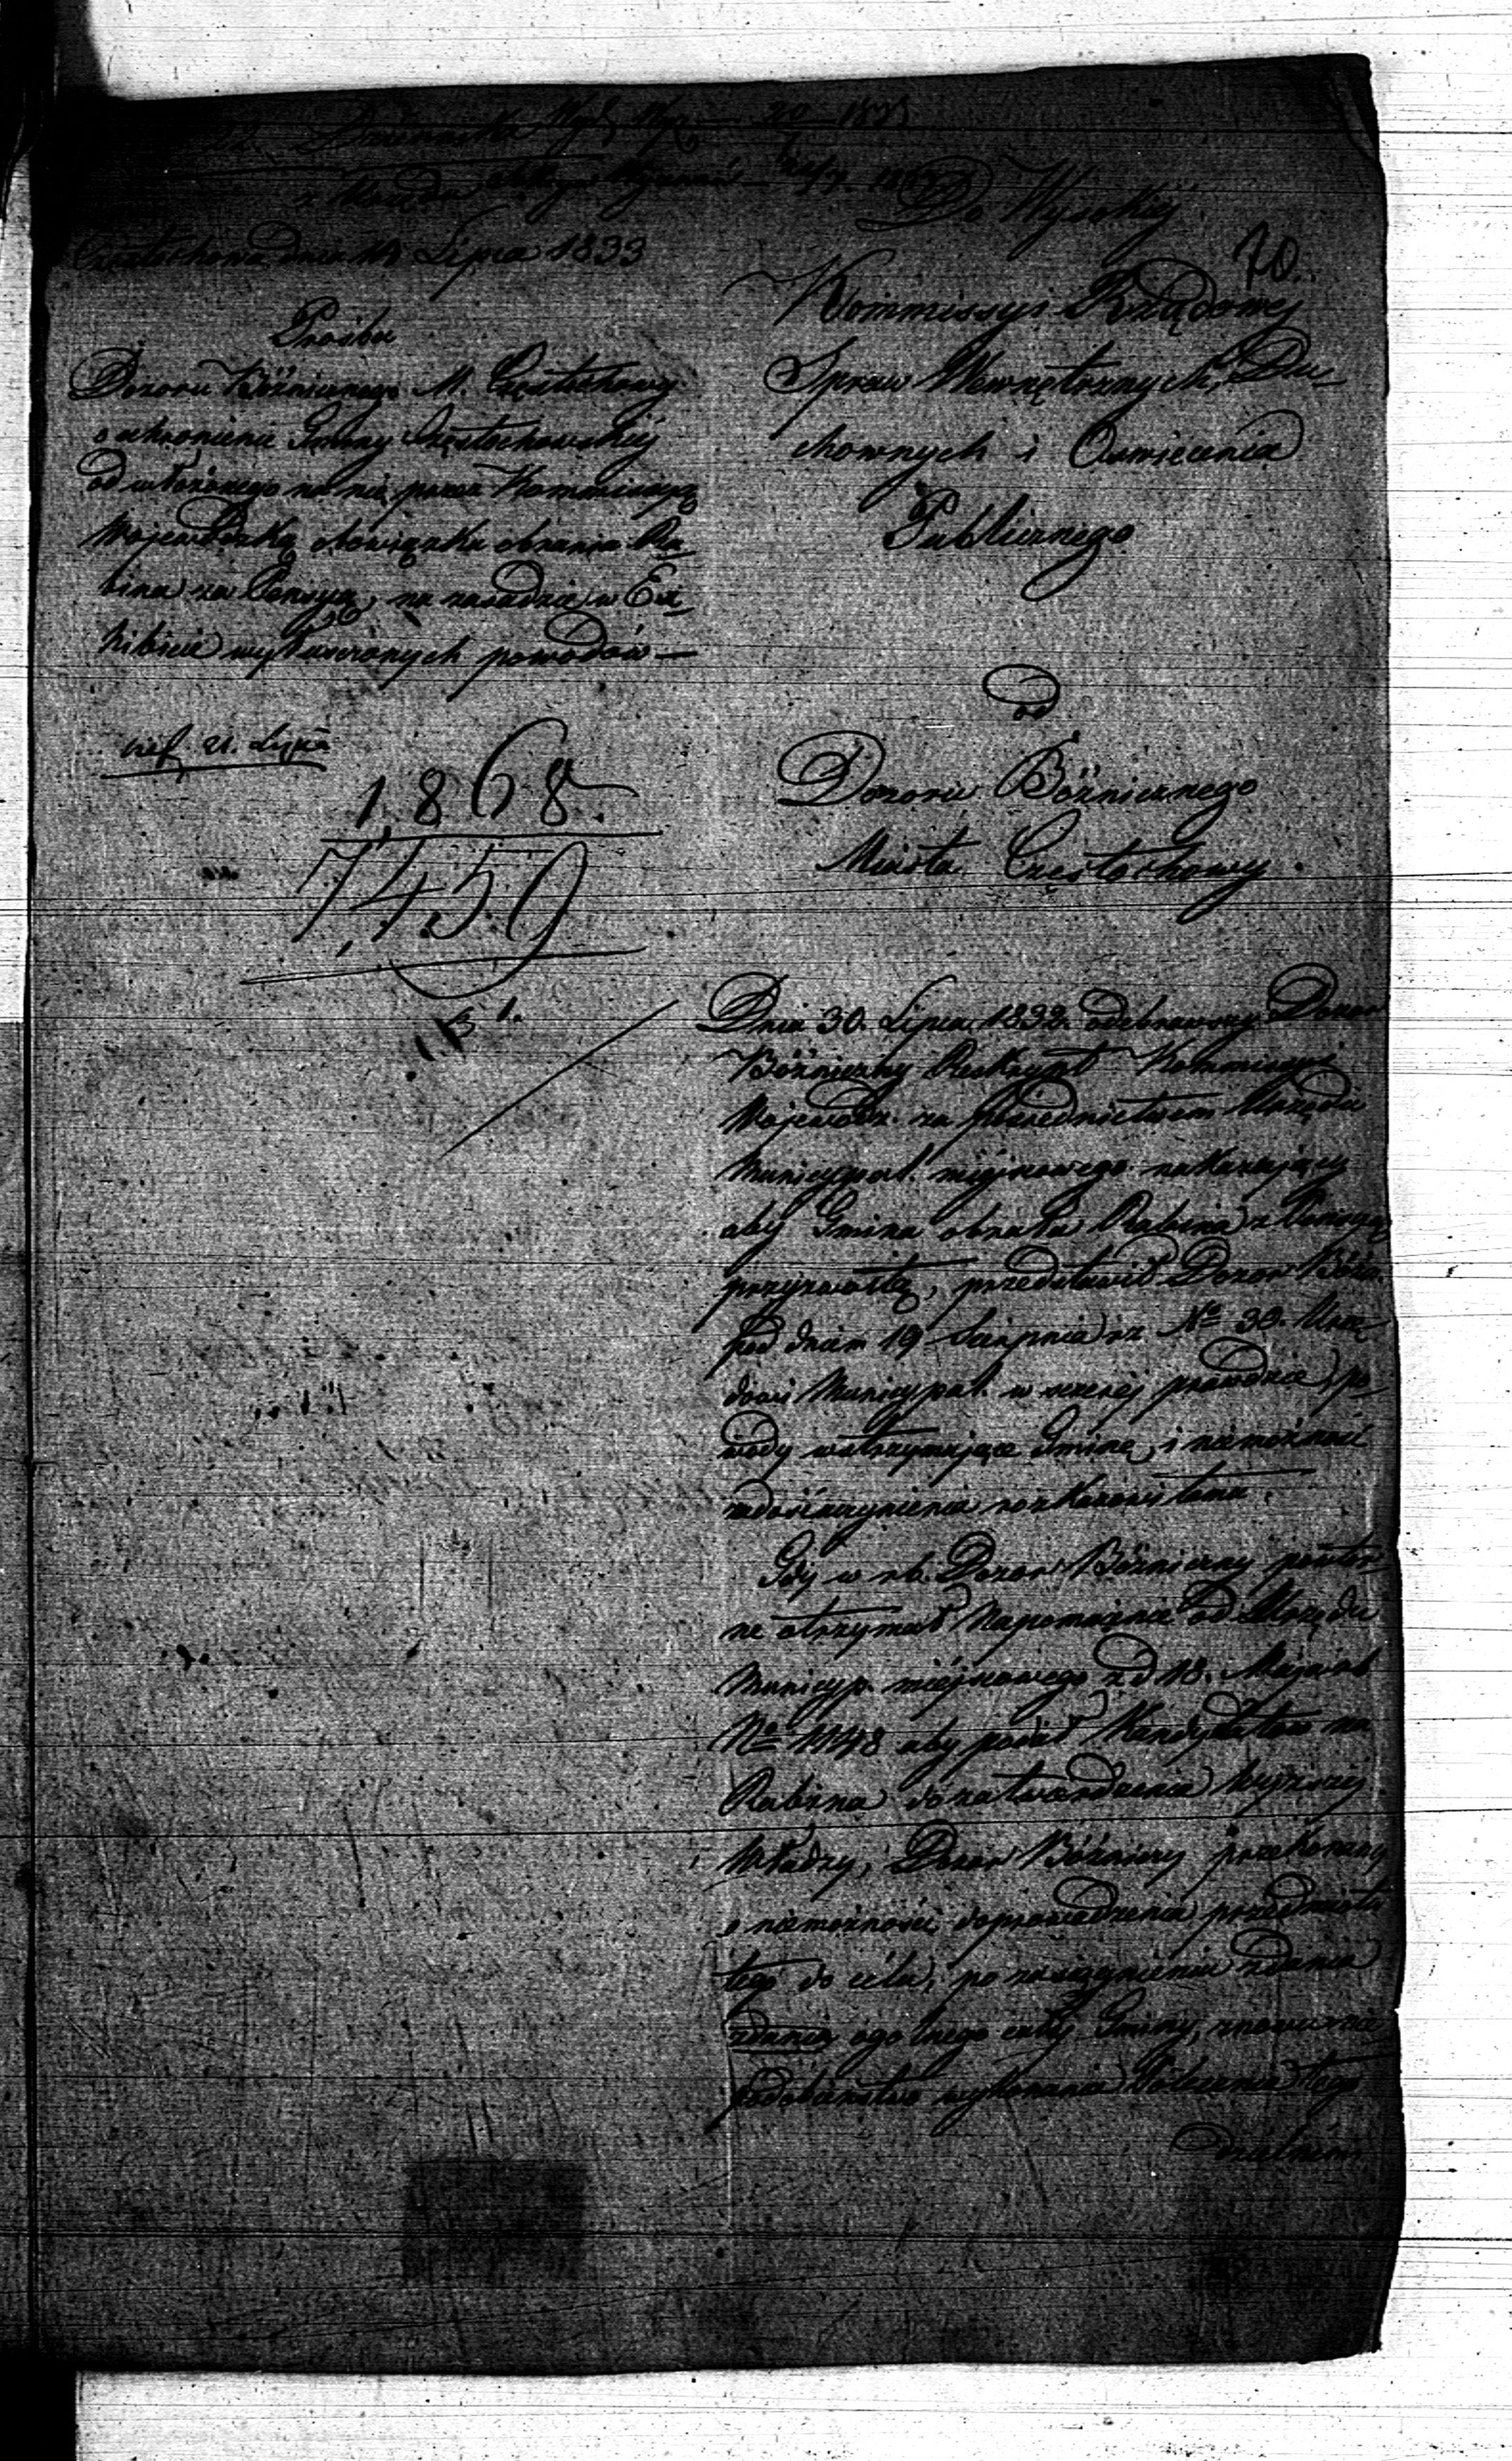 Częstochowa dnia 14 Lipca 1833
Prośba
Dozoru Bóżnicznego M. Częstochowy
o uchronienie Gminy Częstochowskiéj
od włożonego na nią przez Kommissyą
Wojewódzką obowiązku obrania Ra_
bina za Pensyą, na zasadzie w Ex_
hibicie wyłuszczonych powodów —
21. Lipca
1,868.
7,459
Do Wysokiéj
70.
Kommissyi Rządowéj
Spraw Wewnętrznych, Du_
chownych i Oswiecenia
Publicznego
od
Dozoru Bóżnicznego
Miasta Częstochowy
Dnia 30. Lipca 1832. odebrawszy Dozor
Bóżniczny Reskrypt Kommissyi
Wojewódz. za pośrednictwem Urzędu
Municypal. miéjscowego nakazujący
aby Gmina obrała Rabina z Pensyą
przyzwoitą, przedstawił Dozor Bóżn.
pod dniem 19 Sierpnia rz. No 30. Urzę_
dowi Municypal. w szczeréj prawdzie po_
wody wstrzymujące Gminę, i niemożność
zadosićuczynienia rozkazowi temu.
Gdy w rb. Dozor Bóżniczny powtór_
ne otrzymał Napomnienie od Urzędu
Municyp. miéjscowego z d 18. Maja rb
No 1148 aby podał Kandydatów na
Rabina do zatwierdzenia Wyższéj
Władzy, Dozor Bóżniczy przekonany
o niemożności doprowadzenia przedmiotu
tego do celu, po zasiągnieniu zdania
zdania ogolnego całéj Gminy,
wykonania tego